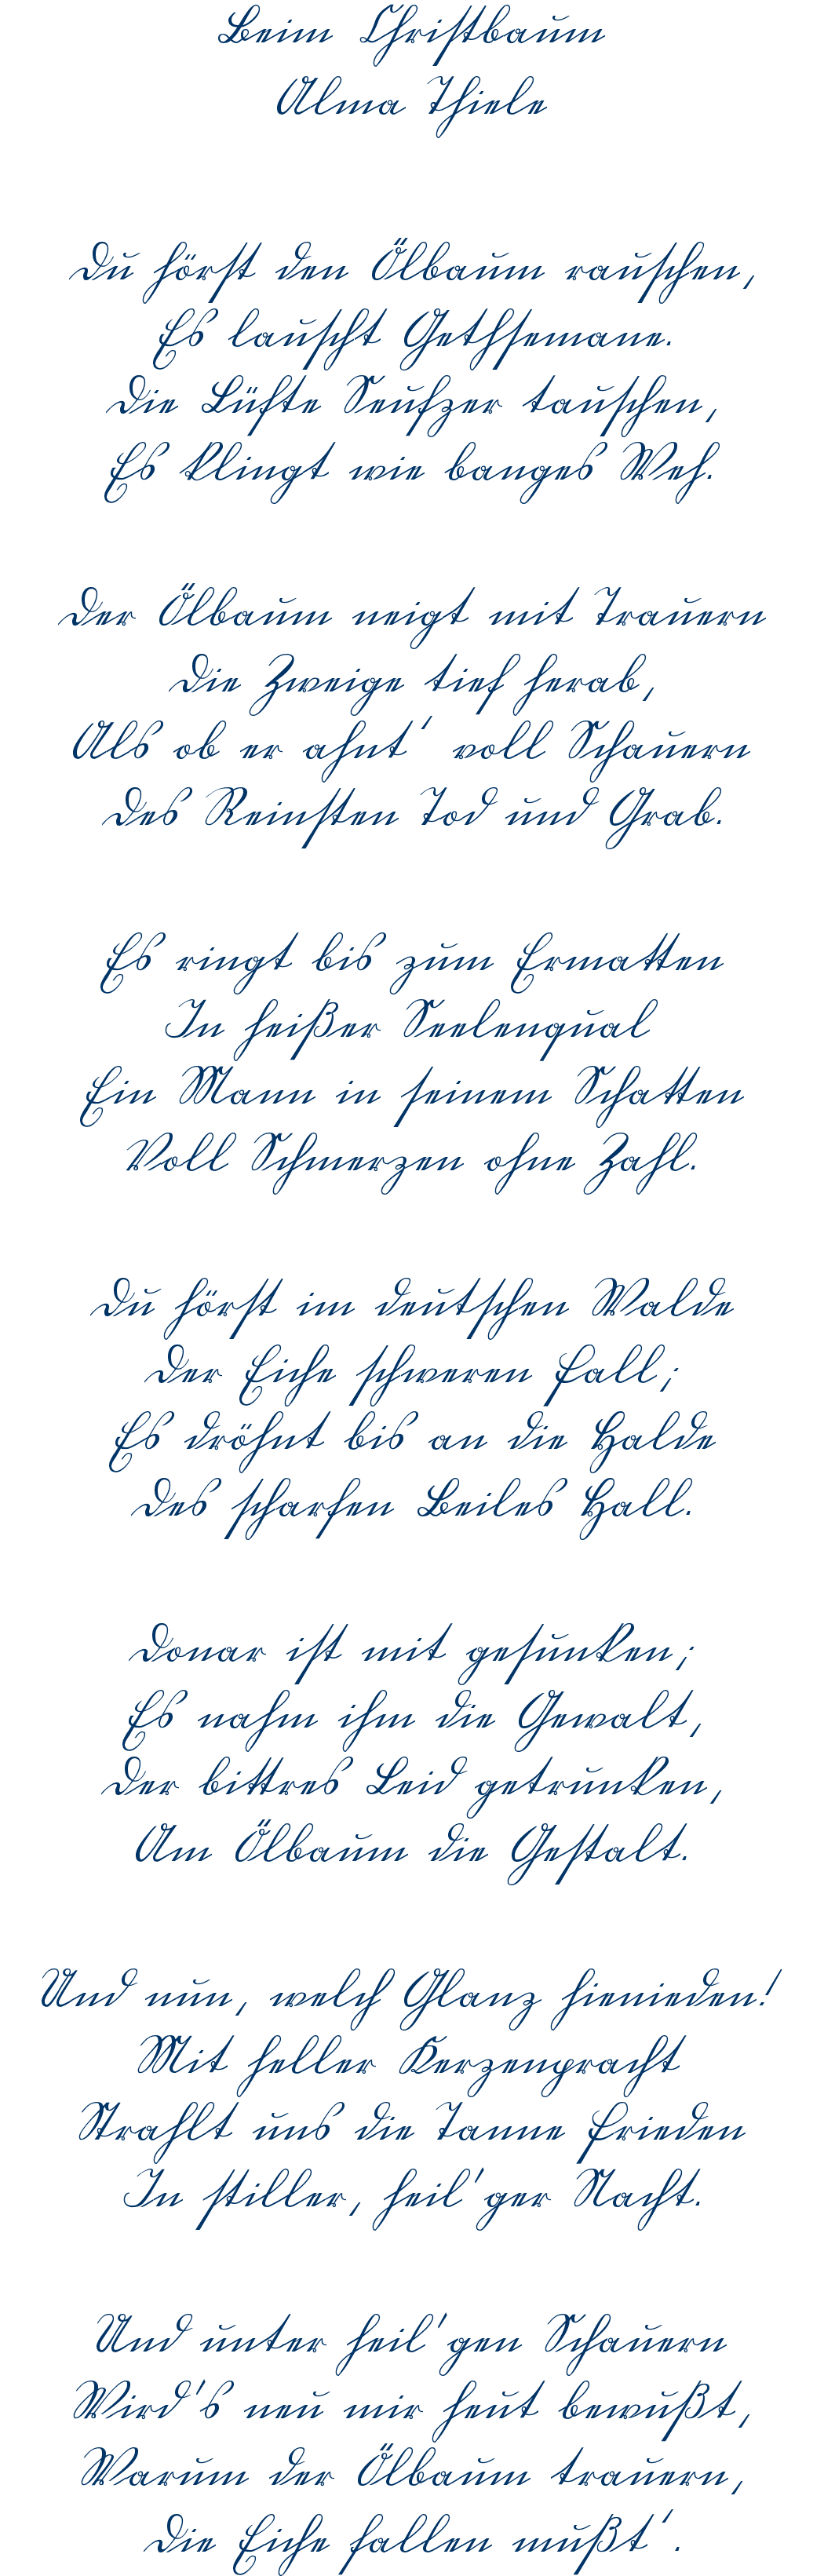 Beim Christbaum
Alma Thiele
Du hörst den Ölbaum rauschen,
Es lauscht Gethsemane.
Die Lüfte Seufzer tauschen,
Es klingt wie banges Weh.
Der Ölbaum neigt mit Trauern
Die Zweige tief herab,
Als ob er ahnt' voll Schauern
Des Reinsten Tod und Grab.
Es ringt bis zum Ermatten
In heißer Seelenqual
Ein Mann in seinem Schatten
Voll Schmerzen ohne Zahl.
Du hörst im deutschen Walde
Der Eiche schweren Fall;
Es dröhnt bis an die Halde
Des scharfen Beiles Hall.
Donar ist mit gesunken;
Es nahm ihm die Gewalt,
Der bittres Leid getrunken,
Am Ölbaum die Gestalt.
Und nun, welch Glanz hienieden!
Mit heller Kerzenpracht
Strahlt uns die Tanne Frieden
In stiller, heil'ger Nacht.
Und unter heil'gen Schauern
Wird's neu mir heut bewußt,
Warum der Ölbaum trauern,
Die Eiche fallen mußt'.